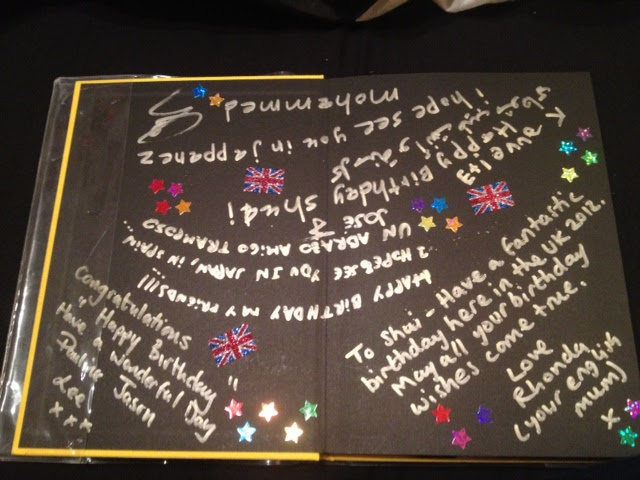 Congratulations
" Happy Birthday "
Have a wonderful Day
Pauline Jason
Lee
x x x
To Shui - Have a fantastic
birthday here in the UK 2012.
May all your birthday
wishes come true.
Love
Rhonda
(your english
mum)
x
HAPPY BIRTHDAY MY FRIENDS!!!
I HOPE SEE YOU IN JAPAN, IN SPAIN...
UN ABRAZO AMIGO TRAMPOSO
JOSE
Happy Birthday
shudi
hope see you in jappanez
mohammed
Happy
Etienne